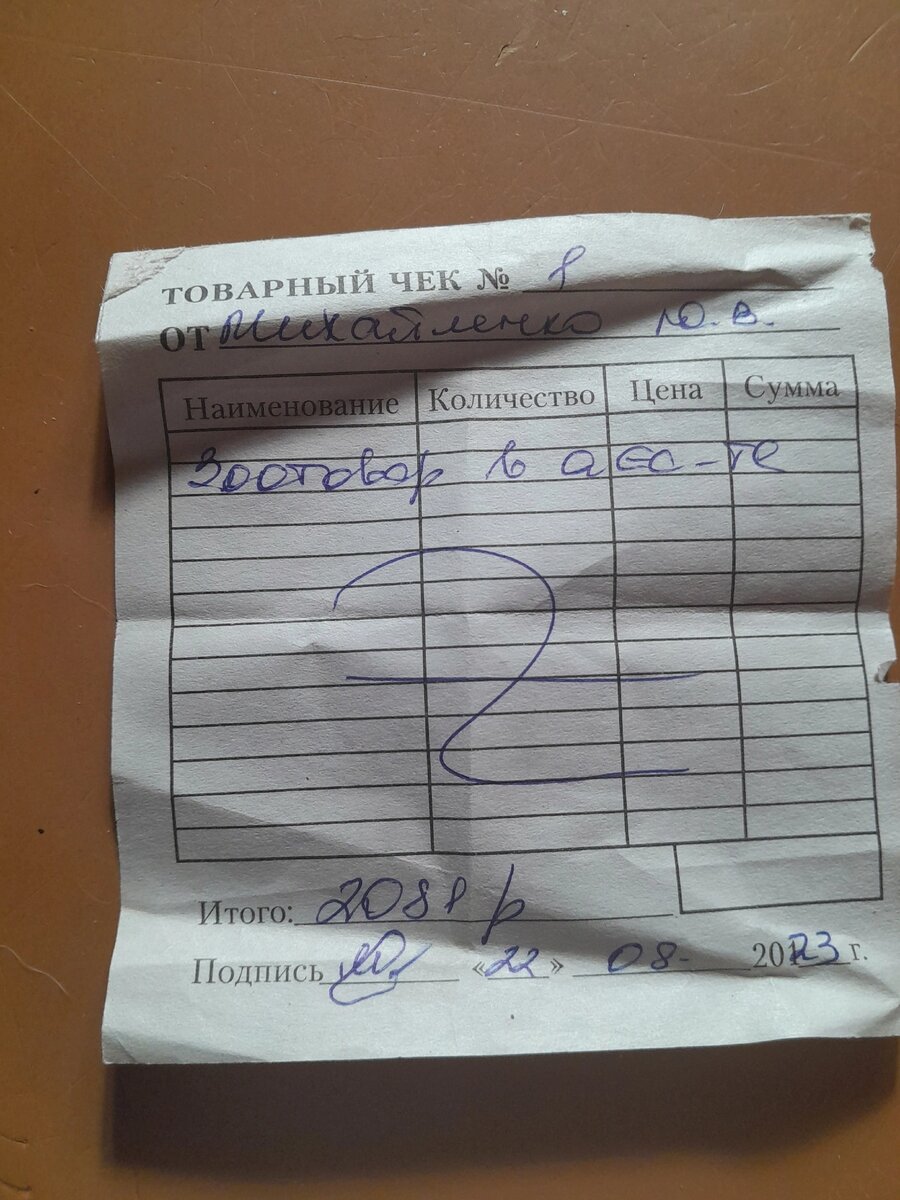 ТОВАРНЫЙ ЧЕК № 1
ОТ Михайленко Ю.В.
Наименование Количество Цена Сумма
Зоотовар в асс-те
Итого: 2081 р
Подпись «22» 08- 2023 г.